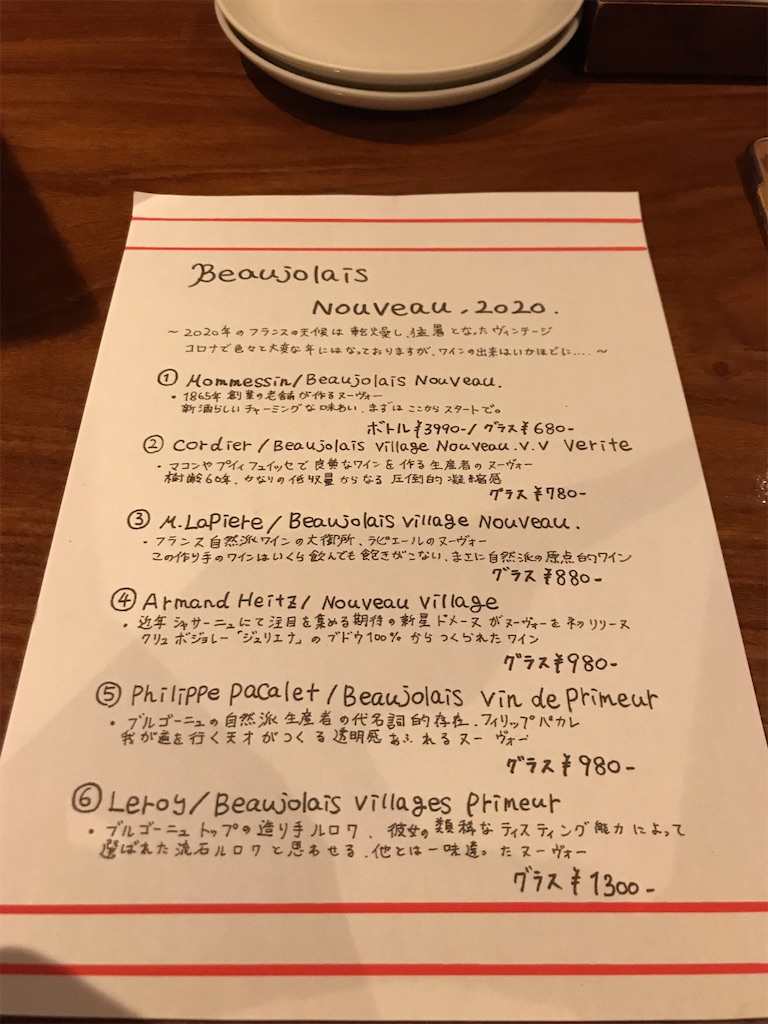 Beaujolais
Nouveau. 2020.
~ 2020年のフランスの天候は乾燥し、猛暑となったヴィンテージ
コロナで色々と大変な年にはなっておりますが、ワインの出来はいかほどに.... ~
① Mommessin/Beaujolais Nouveau.
・1865年創業の老舗が作るヌーヴォー
新酒らしいチャーミングな味わい、まずはここからスタートで。
ボトル¥3990-/グラス¥680-
② Cordier/Beaujolais village Nouveau.v.v Verite
・マコンやプイィフュイッセで良質なワインを作る生産者のヌーヴォー
樹齢60年、かなりの低収量からなる圧倒的凝縮感
グラス¥780-
③ M.LaPiere/Beaujolais village Nouveau.
・フランス自然派ワインの大御所、ラピエールのヌーヴォー
この作り手のワインはいくら飲んでも飽きがこない、まさに自然派の原点的ワイン
グラス¥880-
④ Armand Heitz/Nouveau village
・近年シャサーニュにて注目を集める期待の新星ドメーヌがヌーヴォーを初リリース
クリュボジョレー「ジュリエナ」のブドウ100%からつくられたワイン
グラス¥980-
⑤ Philippe pacalet/Beaujolais vin de primeur
・ブルゴーニュの自然派生産者の代名詞的存在、フィリップパカレ
我が道を行く天才がつくる透明感あふれるヌーヴォー
グラス¥980-
⑥ Leroy/Beaujolais villages primeur
・ブルゴーニュトップの造り手ルロワ、彼女の類稀なティスティング能力によって
選ばれた流石ルロワと思わせる、他とは一味違ったヌーヴォー
グラス¥1300-